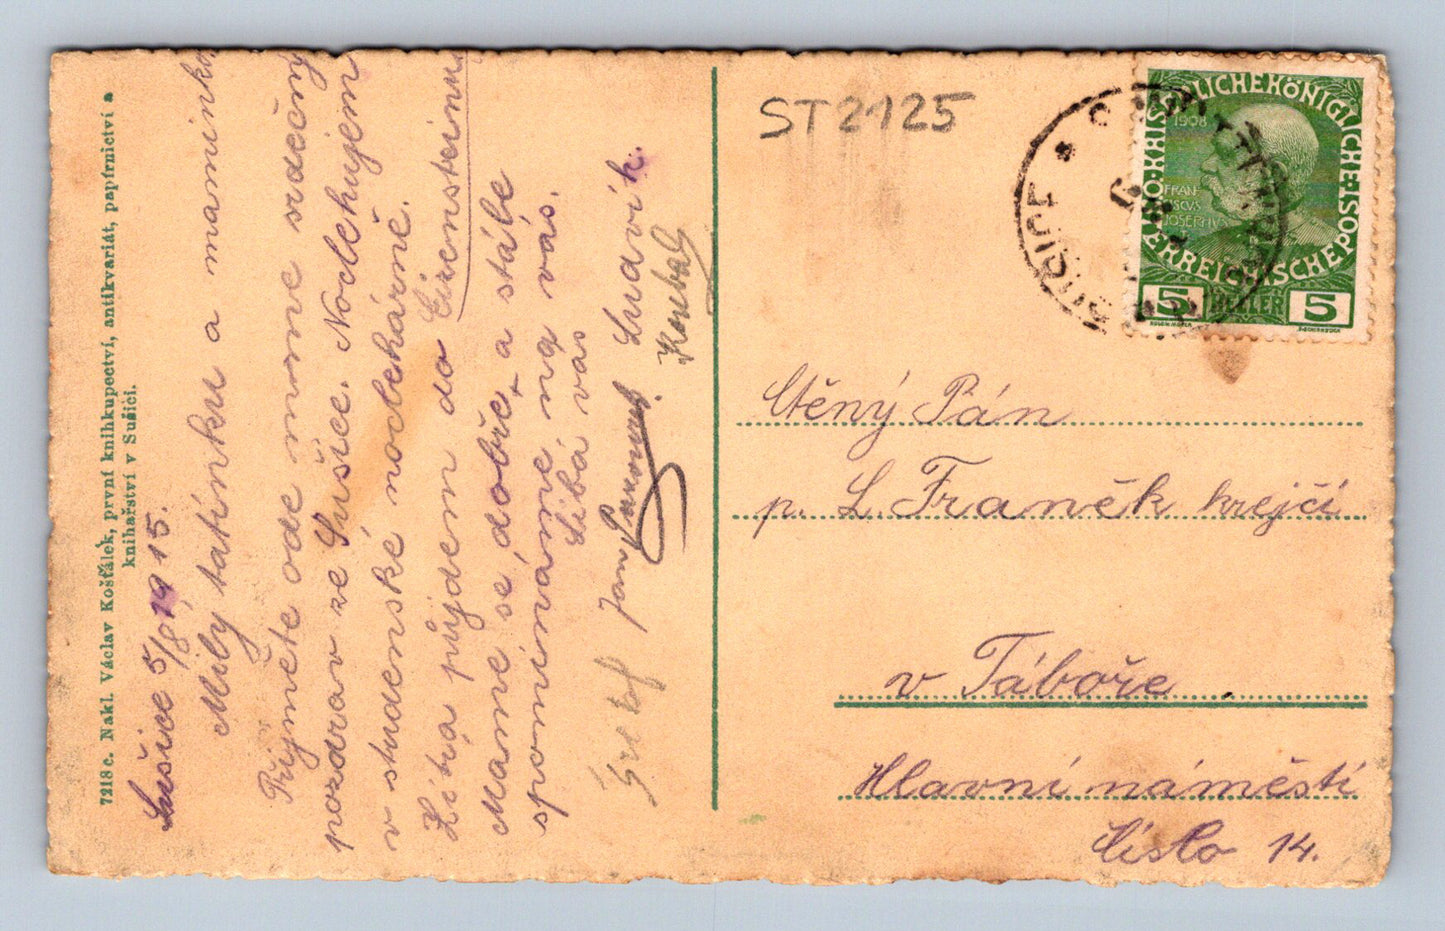 7218 c. Nakl. Václav Košťálek, první knihkupectví, antikvariát, papírnictví a
knihařství v Sušici.
Sušice 5/8 1915.
Milý tatínku a maminko,
Přijměte ode mne srdečný
pozdrav ze Sušice. Noclehujem
v studenské noclehárně.
Zítra půjdem do Eisensteinu
Máme se dobře, a stále
spomínáme na vás.
Líbá vás
Slavík.
ST2125
SUŠICE
K.K. ÖSTERREICHISCHE POST
KAISERLICHEKÖNIGLICHE
1908
FRAN
CISCVS
JOSEPH I
5 HELLER 5
Ctěný Pán
p. L. Franěk krejčí
v Táboře
Hlavní náměstí
číslo 14.